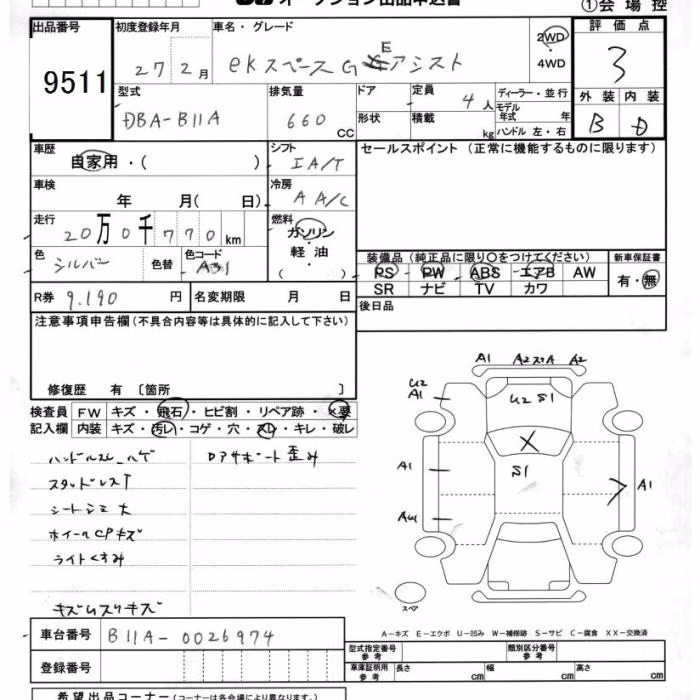 オークション出品申込書
①会場控
出品番号 初度登録年月 車名・グレード 評価点
9511 27 2月 ekスペース G Eアシスト 2WD ・ 4WD 3
型式 排気量 ドア 定員 ディーラー・並行 外装 内装
DBA-B11A 660 CC 形状 積載 4人 kg モデル年式 年 ハンドル 左・右 B D
車歴 自家用・( ) シフト IA/T セールスポイント (正常に機能するものに限ります)
車検 年 月( 日) 冷房 A A/C
走行 20万0千770km 燃料 ガソリン・軽油 ( )
色 シルバー 色替 色コード A31 装備品 (純正品に限り○をつけてください) 新車保証書
PS PW ABS エアB AW 有・無
SR ナビ TV カワ
R券 9.190 円 名変期限 月 日 後日品
注意事項申告欄 (不具合内容等は具体的に記入して下さい)
修復歴 有 〔箇所 〕
検査員 FW キズ・飛石・ヒビ割・リペア跡・×要
記入欄 内装 キズ・汚レ・コゲ・穴・スレ・キレ・破レ
ハンドルスレ ハゲ ロアサポート歪み
スタッドレスT
シートシミ大
ホイールCPキズ
ライトくすみ
キズ
A1 A2 A A2
U2 A1 U2 S1
X
A1 S1 A1
スペア
A-キズ E-エクボ U-凹み W-補修跡 S-サビ C-腐食 XX-交換済
車台番号 B11A-0026974
登録番号
型式指定番号 参考 類別区分番号 参考
車庫証明用 参考 長さ cm 幅 cm 高さ cm
希望出品コーナー (コーナーは各会場により異なります。)